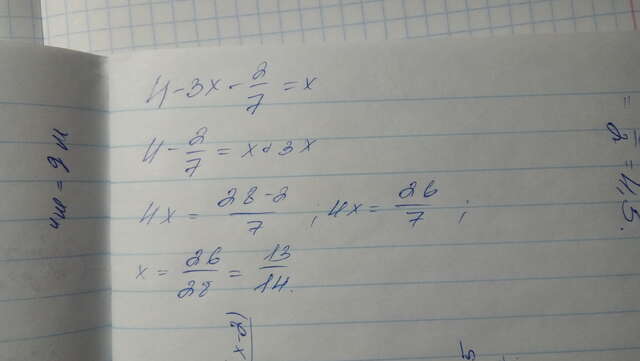 4 - 3x - 2/7 = x
4 - 2/7 = x + 3x
4x = (28 - 2)/7 ; 4x = 26/7 ;
x = 26/28 = 13/14.
x-2)
= 4,5.